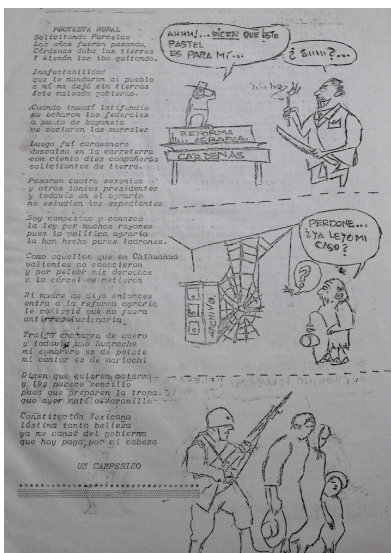 PROTESTA RURAL
Solicitando Parcelas
Los años fueron pasando,
Cárdenas daba las tierras
Y Alemán las iba quitando.
Inafectabilidad
que le mandaron al pueblo
a mí me dejó sin tierras
éste malvado gobierno.
Cuando invadí latifundio
me echaron los federales
a punta de bayoneta
me vaciaron los morrales
Luego fuí caravanero
descalzo en la carretera
con ciento diez compañeros
solicitantes de tierra.
Pasaron cuatro sexenios
y otros tantos presidentes
y todavía en el agrario
no estudian los expedientes
Soy campesino y conozco
la ley por muchas razones
pues la política agraria
la han hecho puros ladrones.
Como aquellos que en Chihuahua
valientes no conocieron
y por pelear mis derechos
a la cárcel me metieron
Mi madre me dijo entonces
entra a la reforma agraria
le contesté que no fuera
antirrevolucionaria
Traigo chamarra de cuero
y todavía uso huarache
mi sombrero es de petate
mi cantar es de mariachi
Dicen que quieren matarme
y les parece sencillo
pues que preparen la tropa
que ayer mató a Jaramillo
Constitución Mexicana
lástima tanta belleza
ya me cansé del gobierno
que hoy paga por mi cabeza
UN CAMPESINO
AHHH!... DICEN QUE ÉSTE
PASTEL
ES PARA MÍ...
¿ SIIII ?...
REFORMA
AGRARIA
CARDENAS
PERDONE...
¿YA LEYO MI
CASO?
?
ARCHIVO